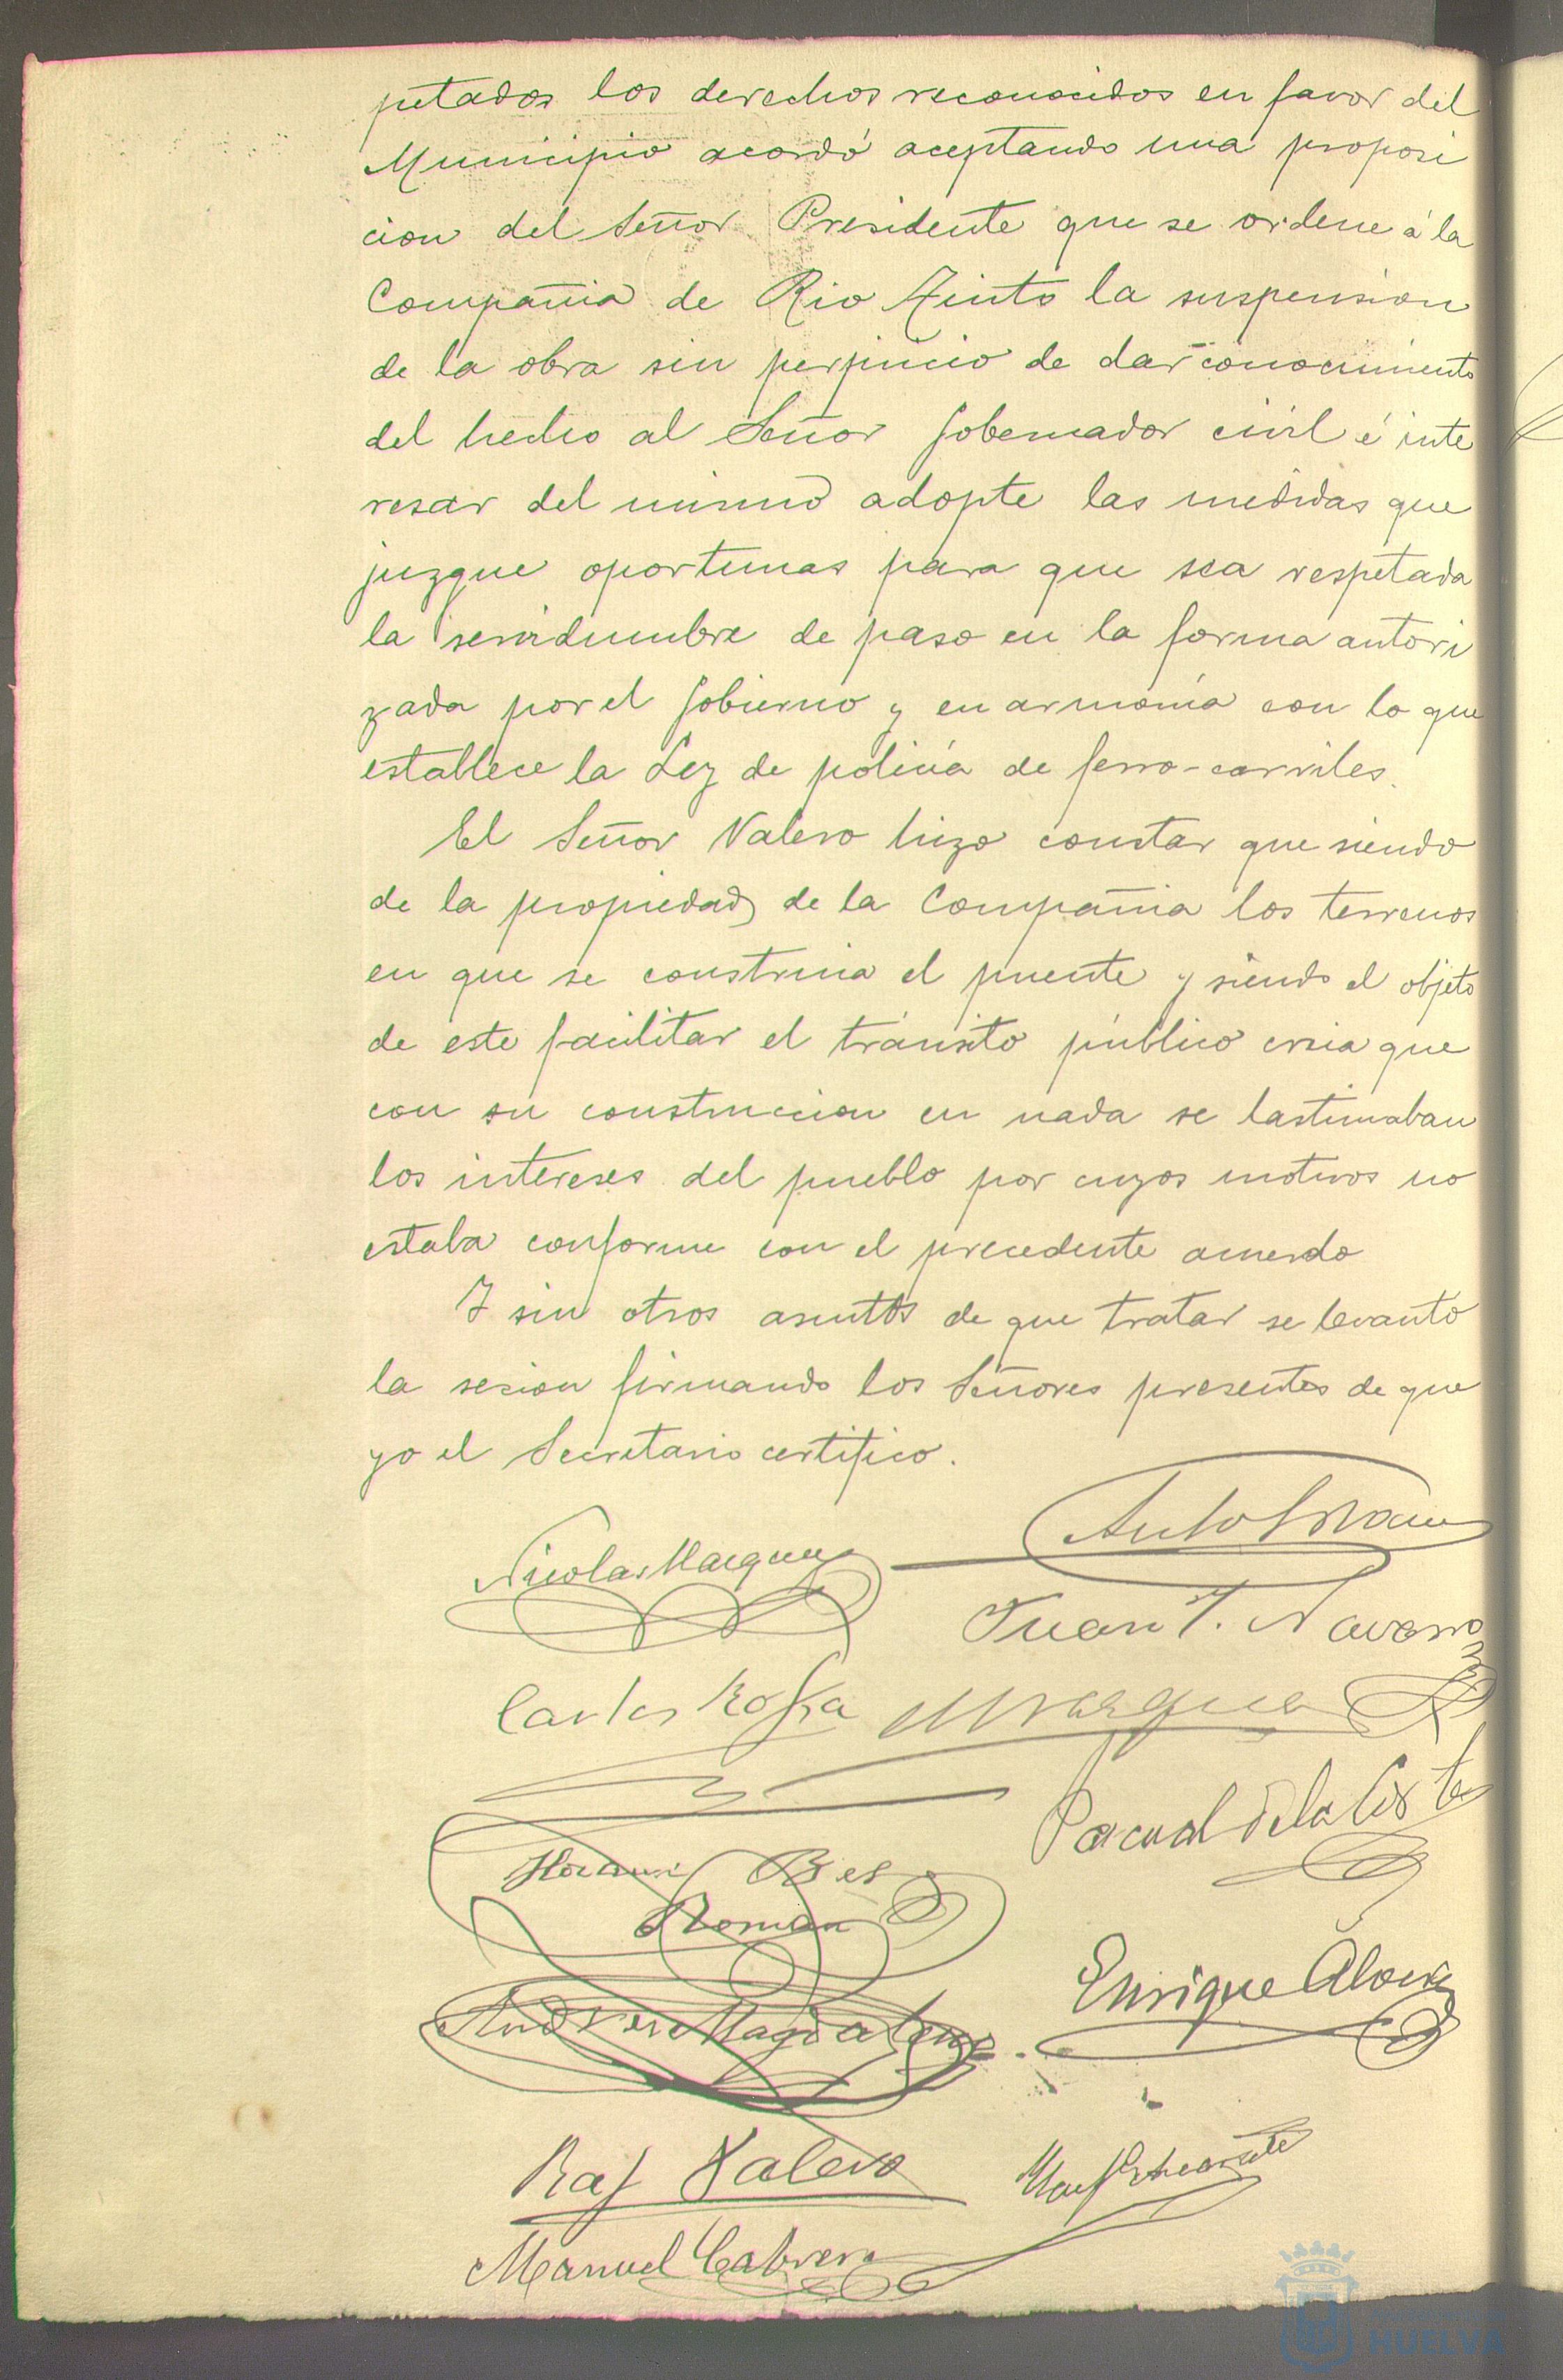 petados los derechos reconocidos en favor del
Municipio acordó aceptando una proposi
cion del Señor Presidente que se ordene á la
Compañia de Rio Tinto la suspension
de la obra sin perjuicio de dar conocimiento
del hecho al Señor Gobernador civil é inte
resar del mismo adopte las medidas que
juzgue oportunas para que sea respetada
la servidumbre de paso en la forma autori
zada por el Gobierno y en armonía con lo que
establece la Ley de policía de ferro-carriles.
El Señor Valero hizo constar que siendo
de la propiedad de la Compañia los terrenos
en que se construia el puente y siendo el objeto
de este facilitar el tránsito público creia que
con su construccion en nada se lastimaban
los intereses del pueblo por cuyos motivos no
estaba conforme con el precedente acuerdo
Y sin otros asuntos de que tratar se levantó
la sesion firmando los Señores presentes de que
yo el Secretario certifico.
Nicolas Marquez
Juan J. Navarro
Carlos
Pascual de la Corte
Roman
Enrique
Andres Magdalena
Raf Valero
Manuel Cabrera
HUELVA